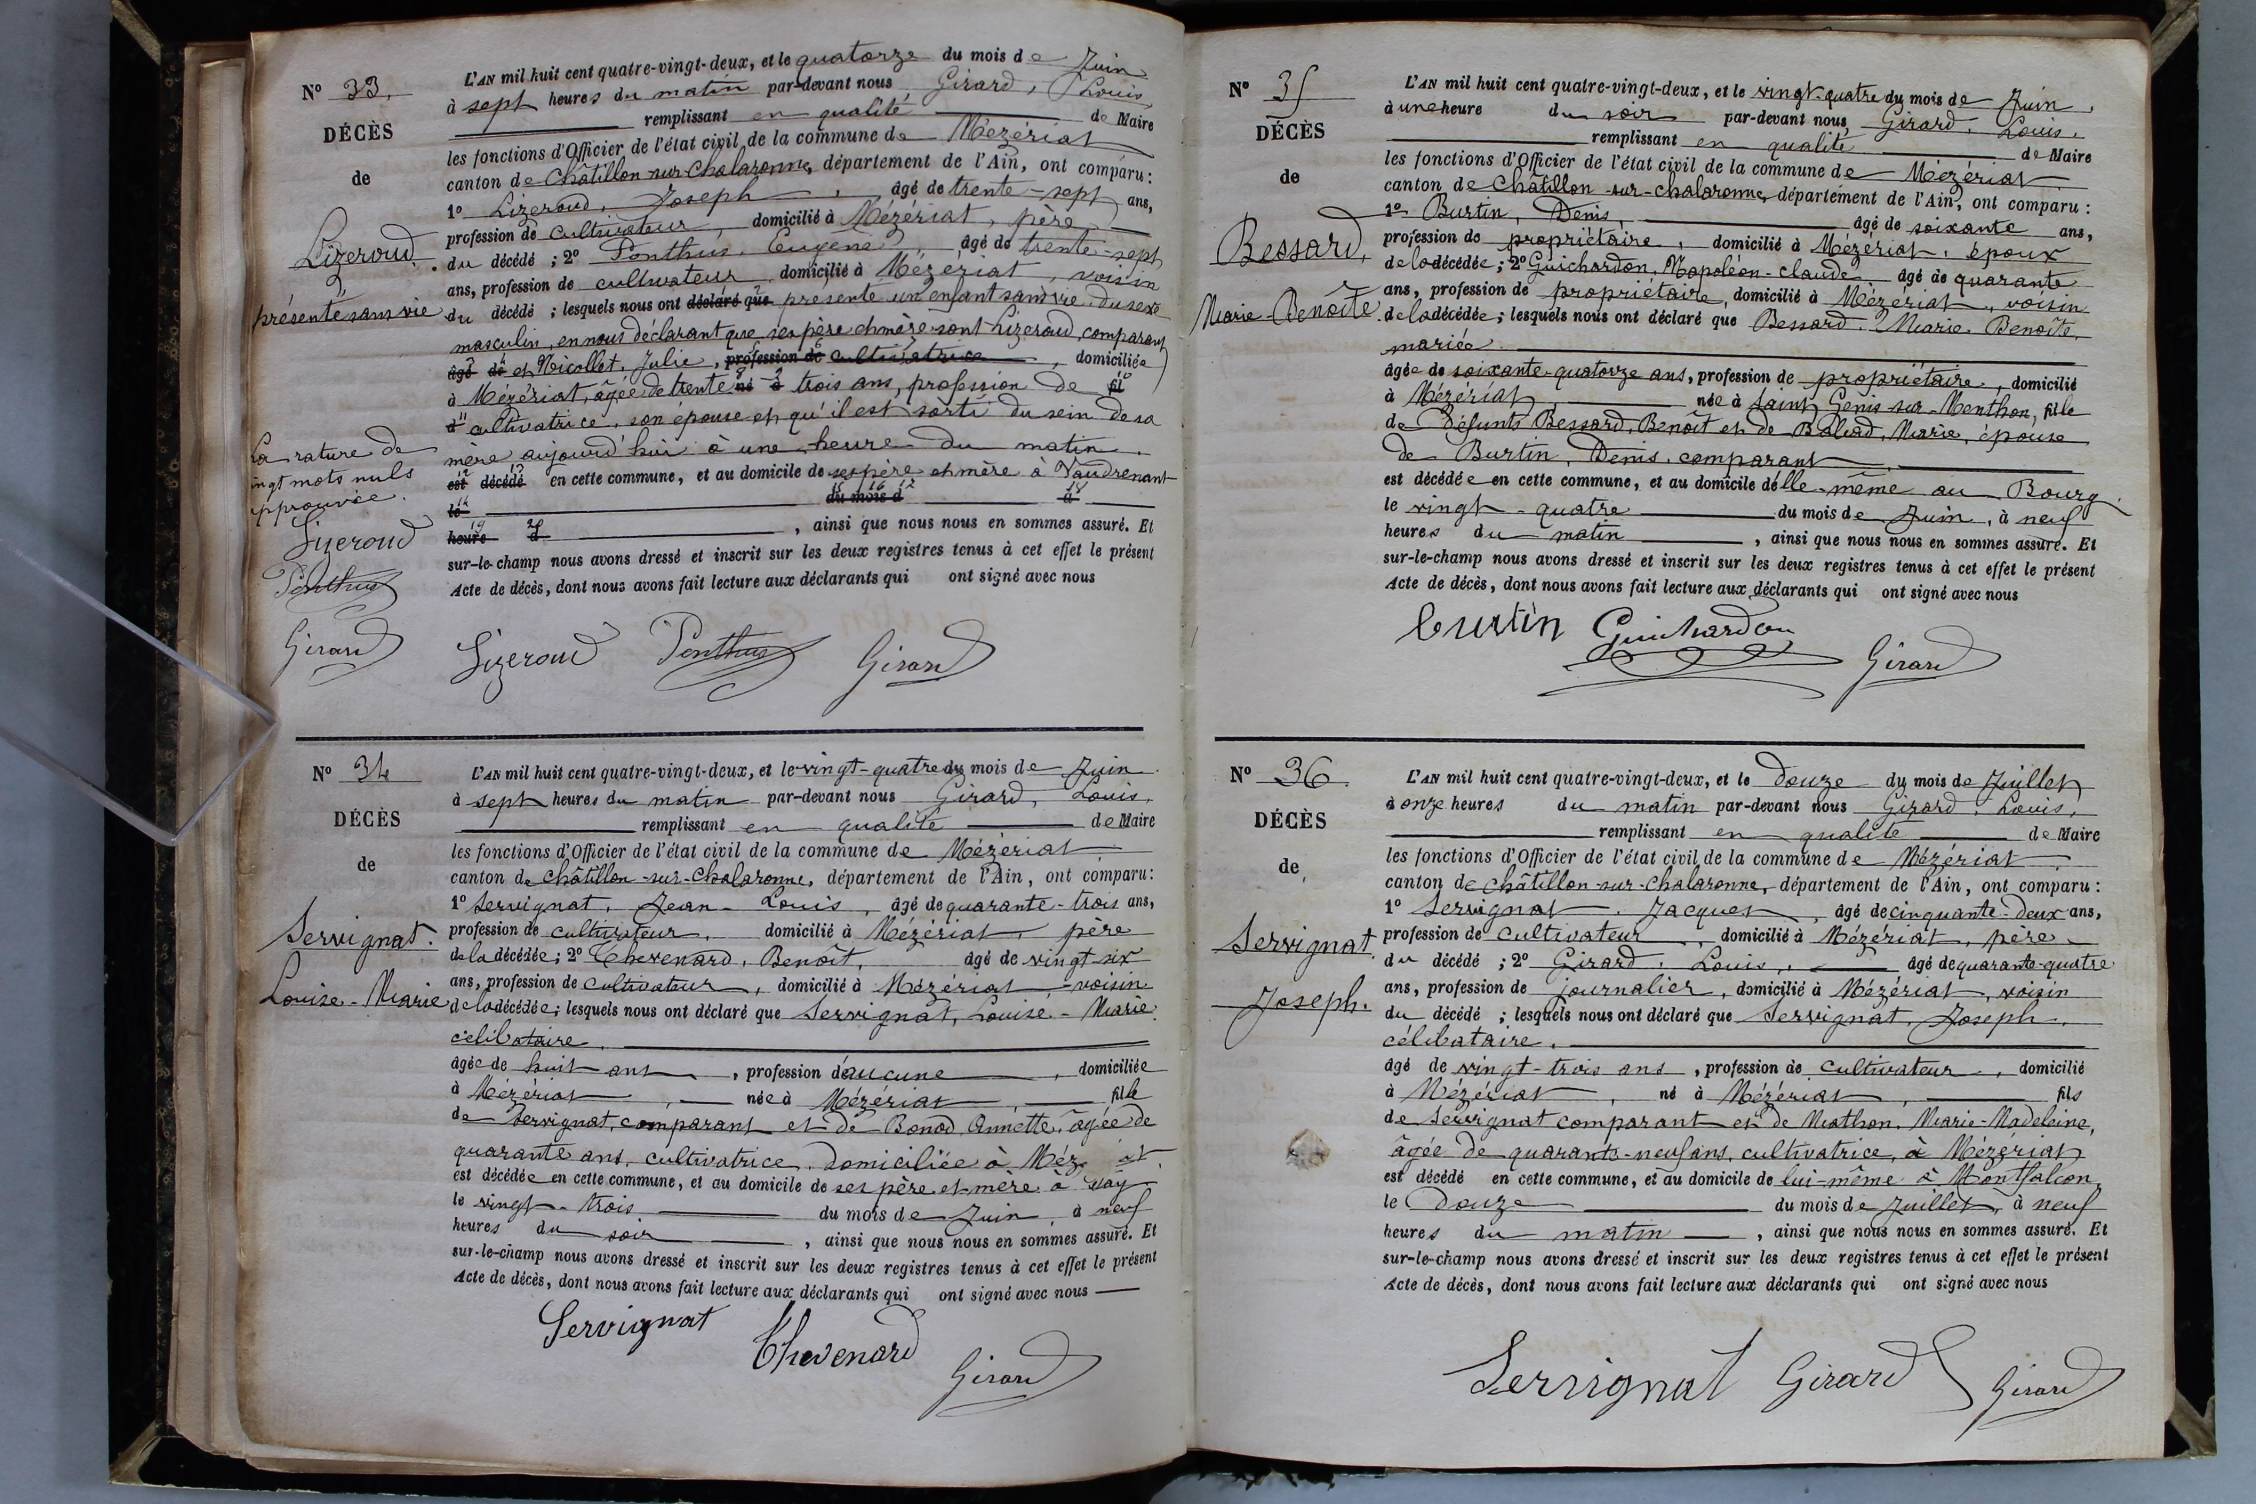 N° 33.
DÉCÈS
de
Lizeroud
présenté sans vie
La rature de
vingt mots nuls
approuvée.
Lizeroud
Ponthus
Girard
L'AN mil huit cent quatre-vingt-deux, et le quatorze du mois de Juin
à sept heures du matin par-devant nous Girard, Louis,
remplissant en qualité de Maire
les fonctions d'Officier de l'état civil de la commune de Mézériat
canton de Châtillon-sur-Chalaronne, département de l'Ain, ont comparu :
1° Lizeroud, Joseph, âgé de trente-sept ans,
profession de cultivateur, domicilié à Mézériat, père
du décédé ; 2° Ponthus, Eugène, âgé de trente-sept
ans, profession de cultivateur domicilié à Mézériat, voisin
du décédé ; lesquels nous ont déclaré que présenté un enfant sans vie du sexe
masculin, en nous déclarant que ses père et mère sont Lizeroud, comparant
âgé de et Nicollet, Julie, profession de cultivatrice, domiciliée
à Mézériat, âgée de trente né à trois ans, profession de fil
d cultivatrice, son épouse et qu'il est sorti du sein de sa
mère aujourd'hui à une heure du matin.
est décédé en cette commune, et au domicile de ses père et mère à Vaudrenant
le du mois d à
heure d, ainsi que nous nous en sommes assuré. Et
sur-le-champ nous avons dressé et inscrit sur les deux registres tenus à cet effet le présent
Acte de décès, dont nous avons fait lecture aux déclarants qui ont signé avec nous
Lizeroud Ponthus Girard
N° 34
DÉCÈS
de
Servignat.
Louise-Marie
L'AN mil huit cent quatre-vingt-deux, et le vingt-quatre du mois de Juin
à sept heures du matin par-devant nous Girard, Louis,
remplissant en qualité de Maire
les fonctions d'Officier de l'état civil de la commune de Mézériat
canton de Châtillon-sur-Chalaronne, département de l'Ain, ont comparu :
1° Servignat, Jean-Louis, âgé de quarante-trois ans,
profession de cultivateur, domicilié à Mézériat, père
de la décédée ; 2° Thevenard, Benoît, âgé de vingt-six
ans, profession de cultivateur, domicilié à Mézériat voisin
de la décédée ; lesquels nous ont déclaré que Servignat, Louise-Marie
célibataire,
âgée de huit ans, profession d'aucune, domiciliée
à Mézériat, née à Mézériat, fille
de Servignat, comparant et de Bonod, Annette, âgée de
quarante ans, cultivatrice, domiciliée à Méz at
est décédée en cette commune, et au domicile de ses père et mère à Vay
le vingt-trois du mois de Juin, à neuf
heures du soir, ainsi que nous nous en sommes assuré. Et
sur-le-champ nous avons dressé et inscrit sur les deux registres tenus à cet effet le présent
Acte de décès, dont nous avons fait lecture aux déclarants qui ont signé avec nous
Servignat Thevenard Girard
N° 35
DÉCÈS
de
Bessard,
Marie-Benoîte
L'AN mil huit cent quatre-vingt-deux, et le vingt-quatre du mois de Juin,
à une heure du soir par-devant nous Girard, Louis,
remplissant en qualité de Maire
les fonctions d'Officier de l'état civil de la commune de Mézériat
canton de Châtillon-sur-Chalaronne, département de l'Ain, ont comparu :
1° Burtin, Denis, âgé de soixante ans,
profession de propriétaire, domicilié à Mézériat, époux
de la décédée ; 2° Guichardon, Napoléon-Claude âgé de quarante
ans, profession de propriétaire, domicilié à Mézériat, voisin
de la décédée ; lesquels nous ont déclaré que Bessard, Marie-Benoîte,
mariée
âgée de soixante-quatorze ans, profession de propriétaire, domicilié
à Mézériat, née à Saint Genis-sur-Menthon, fille
de défunts Bessard, Benoît et de Balvad, Marie, épouse
de Burtin, Denis, comparant
est décédée en cette commune, et au domicile d'elle-même au Bourg
le vingt-quatre du mois de Juin, à neuf
heures du matin, ainsi que nous nous en sommes assuré. Et
sur-le-champ nous avons dressé et inscrit sur les deux registres tenus à cet effet le présent
Acte de décès, dont nous avons fait lecture aux déclarants qui ont signé avec nous
Burtin Guichardon Girard
N° 36.
DÉCÈS
de
Servignat
Joseph.
L'AN mil huit cent quatre-vingt-deux, et le douze du mois de Juillet
à onze heures du matin par-devant nous Girard, Louis,
remplissant en qualité de Maire
les fonctions d'Officier de l'état civil de la commune de Mézériat
canton de Châtillon-sur-Chalaronne, département de l'Ain, ont comparu :
1° Servignat, Jacques, âgé de cinquante-deux ans,
profession de cultivateur, domicilié à Mézériat, père
du décédé ; 2° Girard, Louis, âgé de quarante-quatre
ans, profession de journalier, domicilié à Mézériat, voisin
du décédé ; lesquels nous ont déclaré que Servignat, Joseph,
célibataire,
âgé de vingt-trois ans, profession de cultivateur, domicilié
à Mézériat, né à Mézériat, fils
de Servignat comparant et de Mathon, Marie-Madeleine,
âgée de quarante-neuf ans, cultivatrice, à Mézériat
est décédé en cette commune, et au domicile de lui-même à Montfalcon
le douze du mois de Juillet, à neuf
heures du matin, ainsi que nous nous en sommes assuré. Et
sur-le-champ nous avons dressé et inscrit sur les deux registres tenus à cet effet le présent
Acte de décès, dont nous avons fait lecture aux déclarants qui ont signé avec nous
Servignat Girard Girard